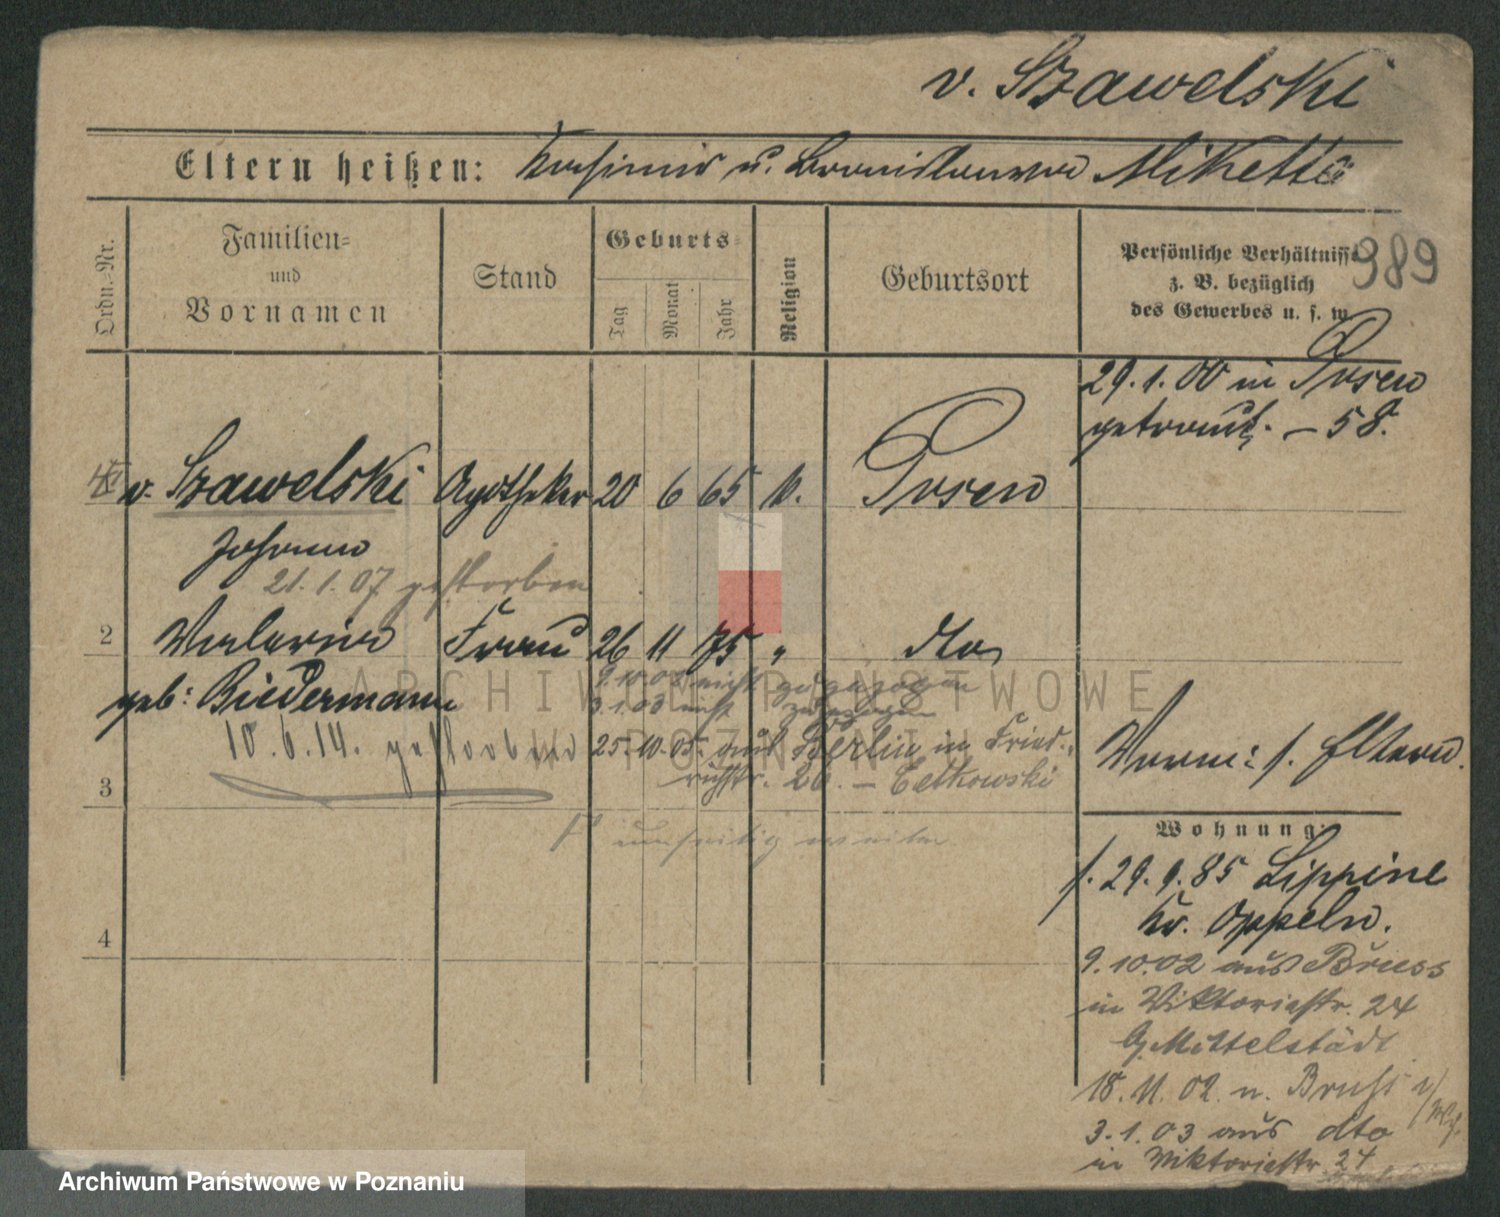 v. Szawelski
Eltern heißen: Kasimir u. Bronislawa Miketta
989
Ordn.-Nr.
Familien-
und
Vornamen
Stand
Geburts-
Tag
Monat
Jahr
Religion
Geburtsort
Persönliche Verhältnisse
z. B. bezüglich
des Gewerbes u. s. w.
29. 1. 00 in Posen
getraut. – 58.
v. Szawelski Apotheker 20 6 65 k. Posen
Johann
21. 1. 07 gestorben
2 Valeria Frau 26 11 75 " dto
geb: Biedermann
9.10.02 nicht zugezogen
3.1.03 nicht zugezogen
10. 6. 14. gestorben
25. 10. 05. aus Berlin in Fried-
richstr. 26. – Cetkowski
Verm: s. Eltern.
3
umseitig weiter
Wohnung:
f. 29. 9. 85 Lippine
Kr. Oppeln.
4
9.10.02 aus
in Viktoriastr. 24
Mittelstädt
18. 11. 02. n.
3. 1. 03 aus dto
in Viktoriastr. 24
ARCHIWUM PAŃSTWOWE
W POZNANIU
Archiwum Państwowe w Poznaniu